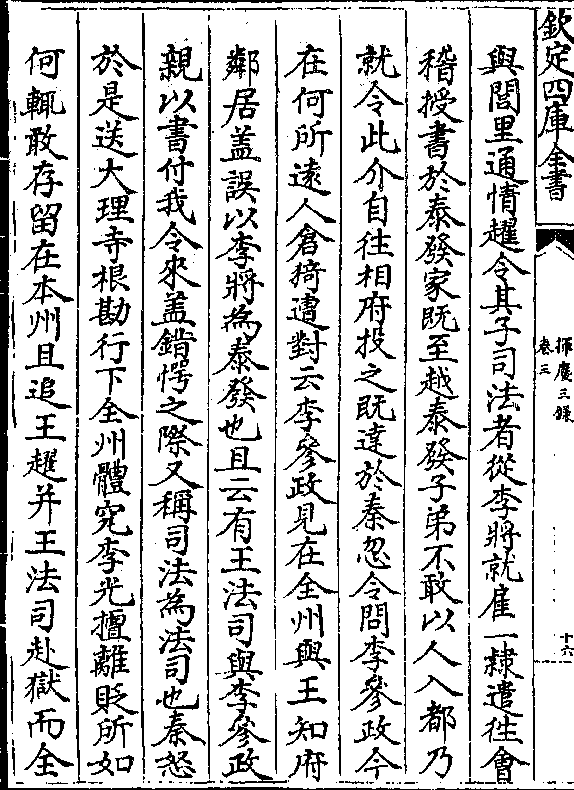 欽定四庫全書
揮麈三錄
卷三
十六
與閭里通情趯令其子司法者從李將就雇一隷遣徃會
稽授書於泰發家既至越泰發子弟不敢以人入都乃
就令此介自往相府投之既達於秦忽令問李參政今
在何所遠人倉猝遽對云李參政見在全州與王知府
鄰居盖誤以李將為泰發也且云有王法司與李參政
親以書付我令來盖錯愕之際又稱司法為法司也秦怒
於是送大理寺根勘行下全州體究李光擅離貶所如
何輒敢存留在本州且追王趯并王法司赴獄而全